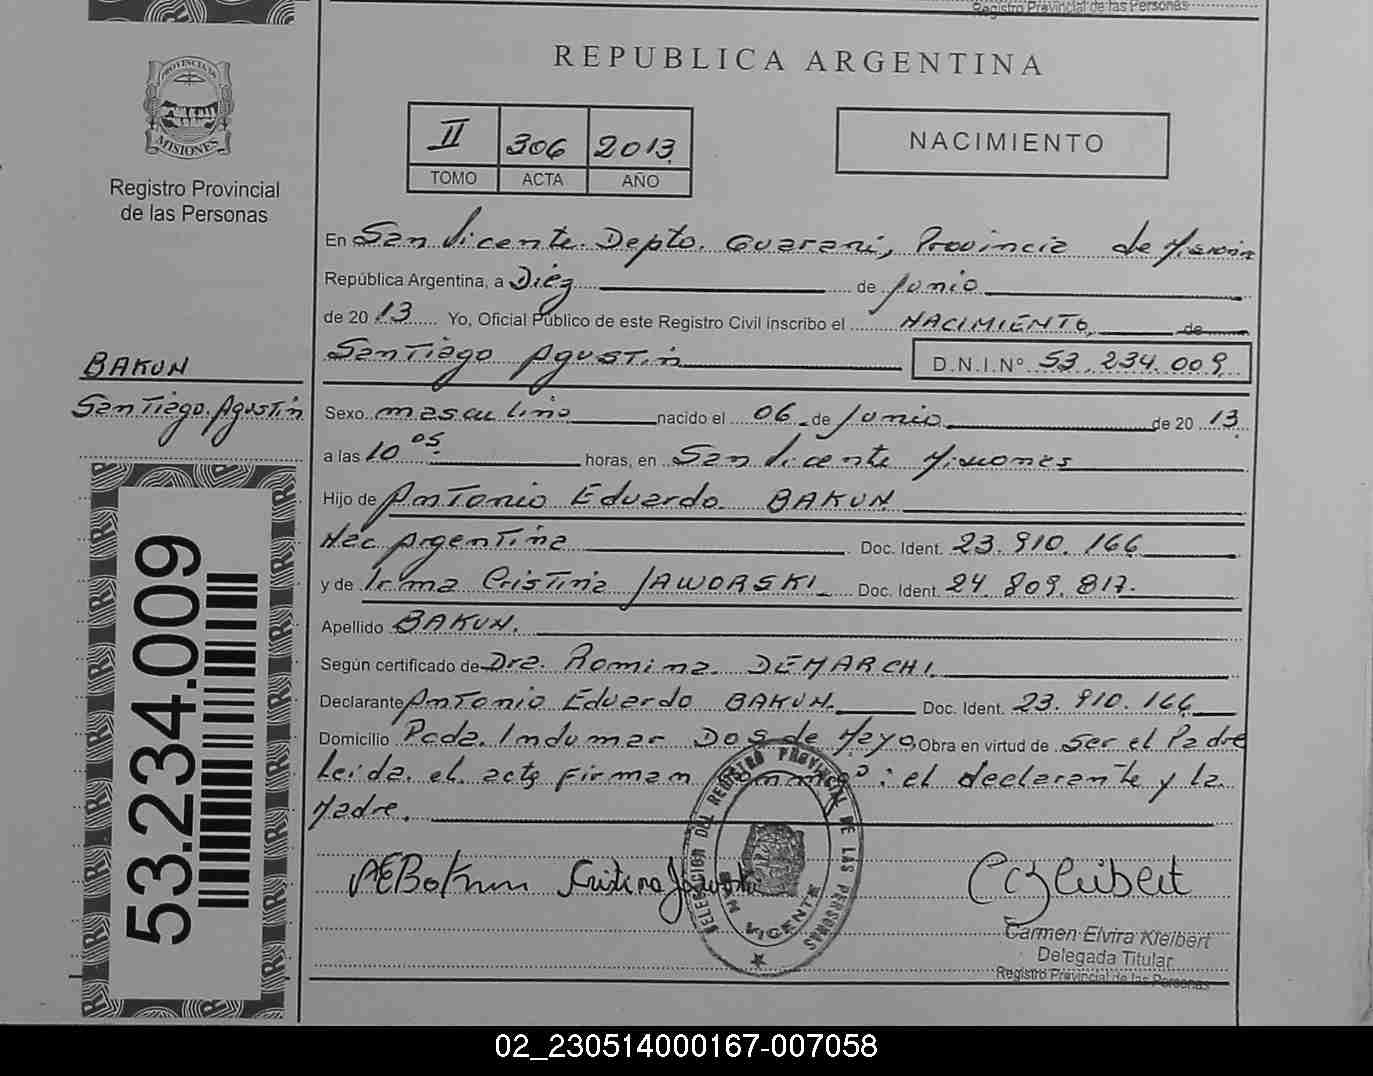 Registro Provincial de las Personas
REPUBLICA ARGENTINA
PROVINCIA DE
MISIONES
Registro Provincial
de las Personas
II 306 2013
TOMO ACTA AÑO
NACIMIENTO
En San Vicente. Depto. Guarani, Provincia de Misión
República Argentina, a Diez de Junio
de 2013 Yo, Oficial Público de este Registro Civil inscribo el NACIMIENTO, de
Santiago Agustin D.N.I.Nº 53.234.009
BAKUN
Santiago Agustin
Sexo masculino nacido el 06 de Junio de 2013.
a las 10 05 horas, en San Vicente Misiones
Hijo de Antonio Eduardo BAKUN
Nac Argentina Doc. Ident. 23.910.166
y de Irma Cristina JAWORSKI Doc. Ident. 24.809.817.
Apellido BAKUN.
Según certificado de Dra. Romina DEMARCHI.
Declarante Antonio Eduardo BAKUN. Doc. Ident. 23.910.166
Domicilio Pcda. Indumar Dos de Mayo Obra en virtud de ser el Padre
Leida el acta firman conmigo: el declarante y la
Madre.
53.234.009
AEBakun Cristina Jaworski CEKleibert
DELEGACION DEL REGISTRO PROVINCIAL DE LAS PERSONAS
SAN VICENTE
Carmen Elvira Kleibert
Delegada Titular
Registro Provincial de las Personas
02_230514000167-007058